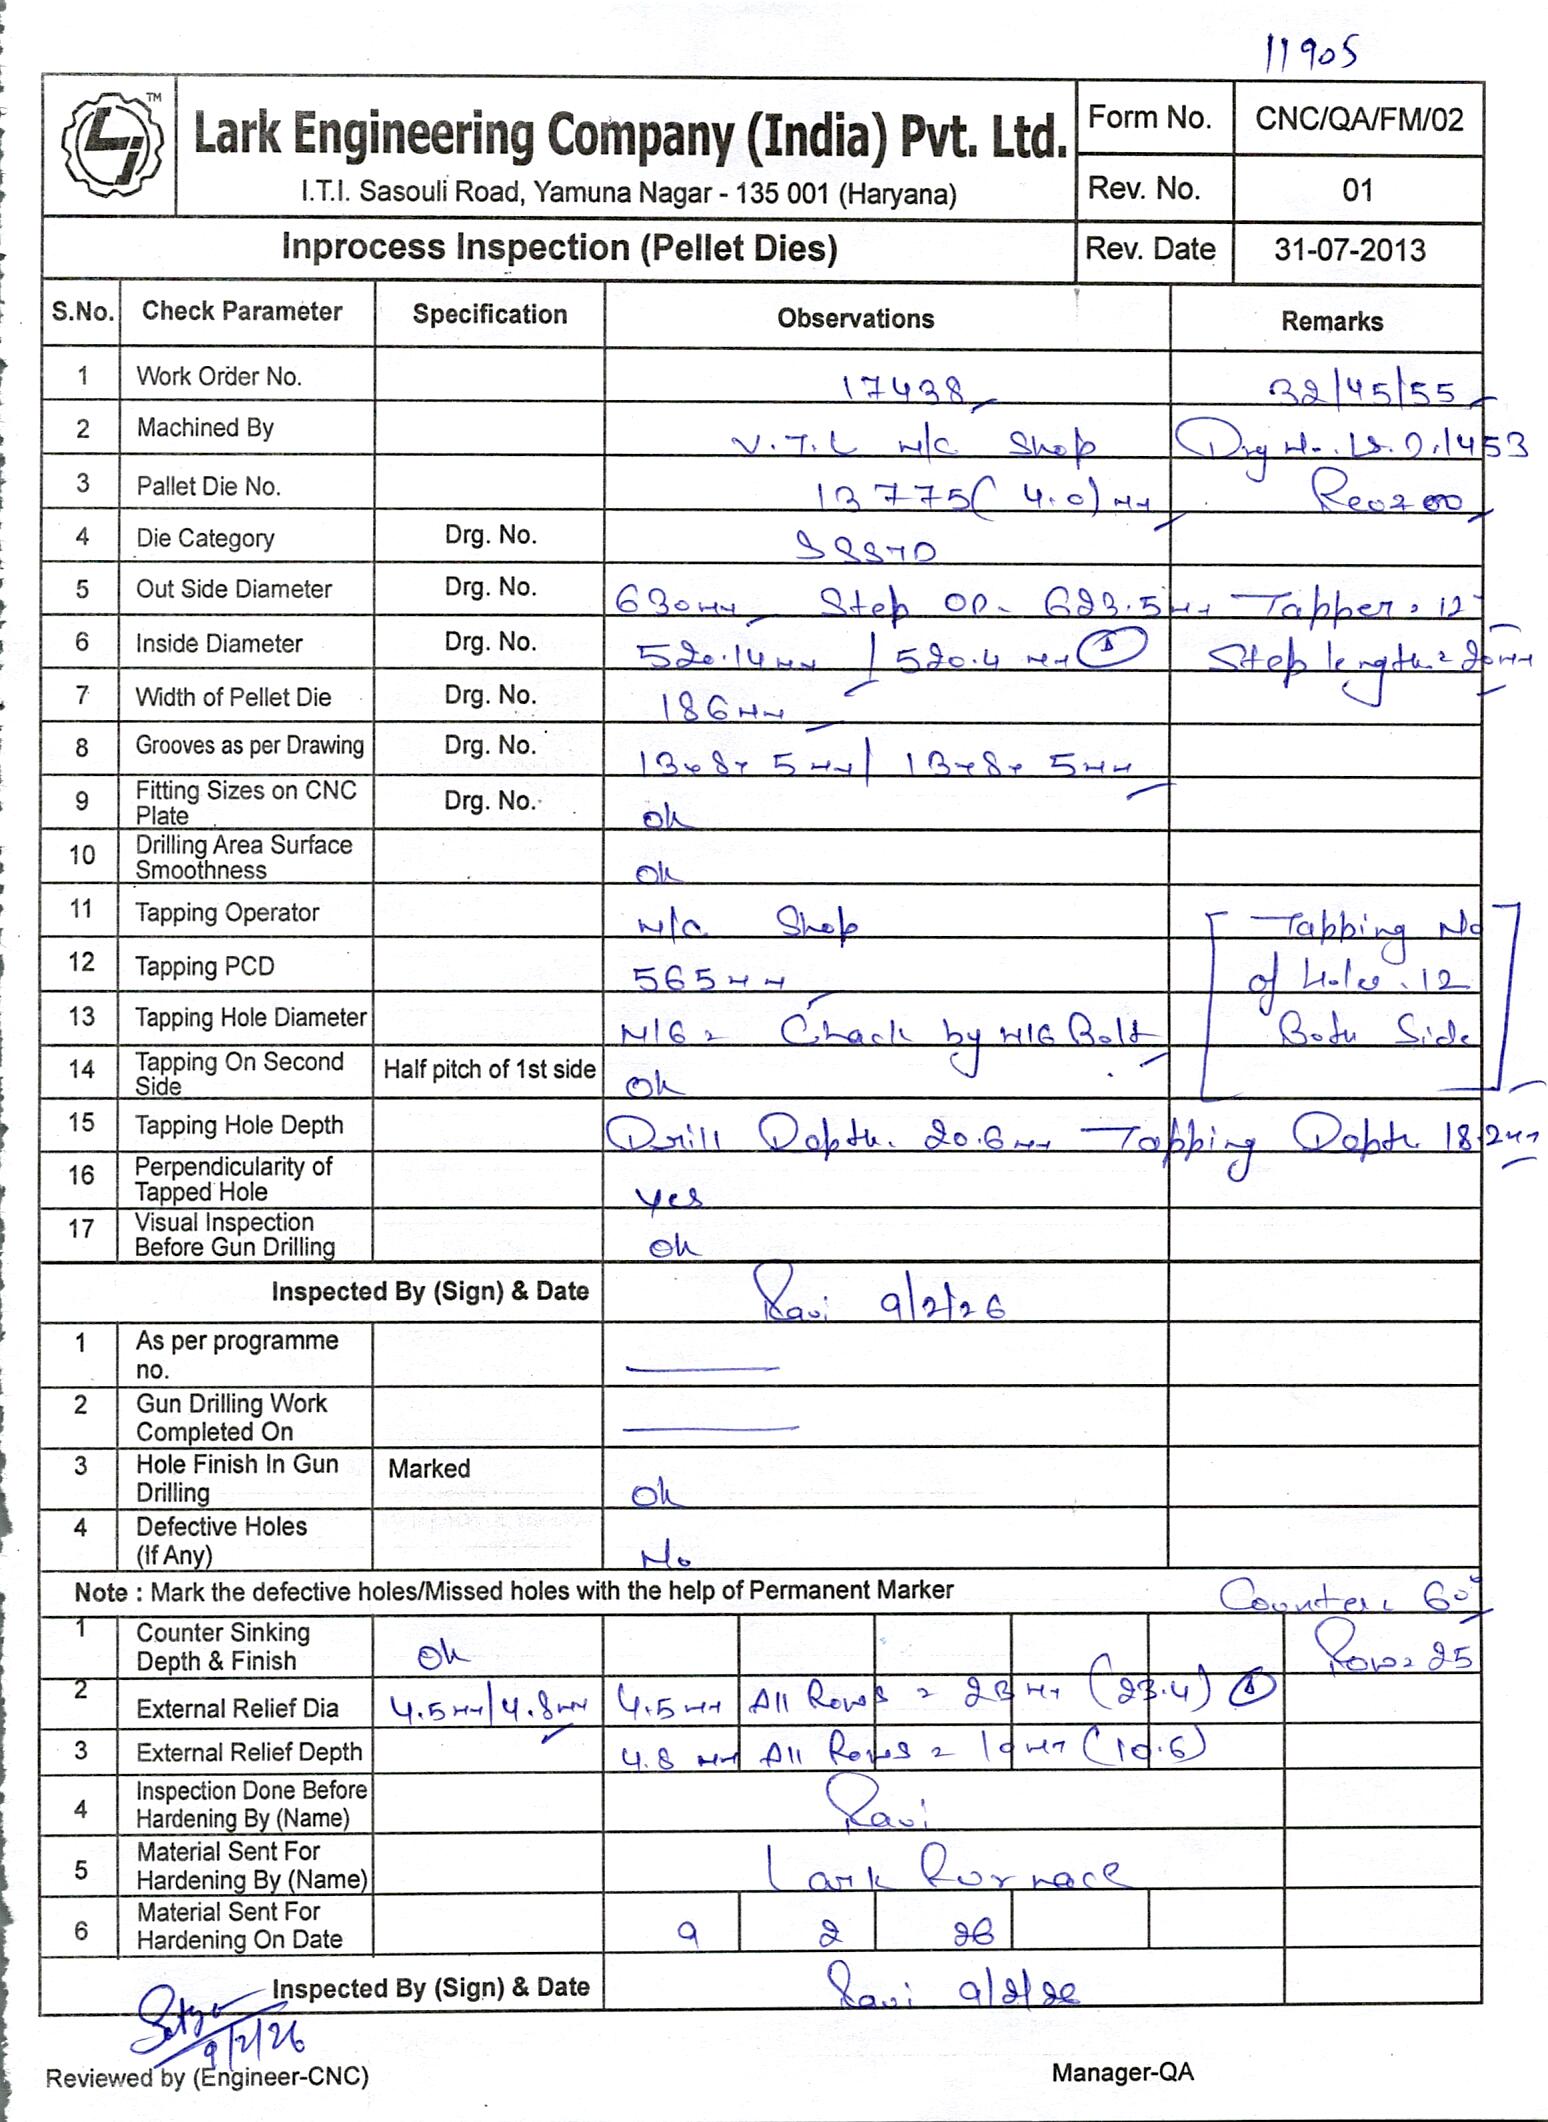 11905
TM
Lark Engineering Company (India) Pvt. Ltd.
I.T.I. Sasouli Road, Yamuna Nagar - 135 001 (Haryana)
Form No. CNC/QA/FM/02
Rev. No. 01
Inprocess Inspection (Pellet Dies) Rev. Date 31-07-2013
S.No. Check Parameter Specification Observations Remarks
1 Work Order No. 17438 32/45/55
2 Machined By V.T.L M/C Shop Drg No. LS.D.1453
3 Pallet Die No. 13775 (4.0) mm Rev=00
4 Die Category Drg. No. SSSTD
5 Out Side Diameter Drg. No. 630mm Step OD- 623.5mm Tapper = 12°
6 Inside Diameter Drg. No. 520.14mm / 520.4 mm Step length = 20mm
7 Width of Pellet Die Drg. No. 186mm
8 Grooves as per Drawing Drg. No. 13x8x5mm / 13x8x5mm
9 Fitting Sizes on CNC Plate Drg. No. ok
10 Drilling Area Surface Smoothness ok
11 Tapping Operator M/C Shop Tapping No
12 Tapping PCD 565mm of Holes . 12
13 Tapping Hole Diameter M16 = Chack by M16 Bolt Both Side
14 Tapping On Second Side Half pitch of 1st side ok
15 Tapping Hole Depth Drill Depth. 20.6mm Tapping Depth 18.2mm
16 Perpendicularity of Tapped Hole yes
17 Visual Inspection Before Gun Drilling ok
Inspected By (Sign) & Date Ravi 9/2/26
1 As per programme no.
2 Gun Drilling Work Completed On
3 Hole Finish In Gun Drilling Marked ok
4 Defective Holes (If Any) No
Note : Mark the defective holes/Missed holes with the help of Permanent Marker Counter. 60°
1 Counter Sinking Depth & Finish ok Row= 25
2 External Relief Dia 4.5mm/4.8mm 4.5mm All Rows = 23mm (23.4)
3 External Relief Depth 4.8 mm All Rows = 10mm (10.6)
4 Inspection Done Before Hardening By (Name) Ravi
5 Material Sent For Hardening By (Name) Lark Furnace
6 Material Sent For Hardening On Date 9 2 26
Inspected By (Sign) & Date Ravi 9/2/26
9/2/26
Reviewed by (Engineer-CNC) Manager-QA